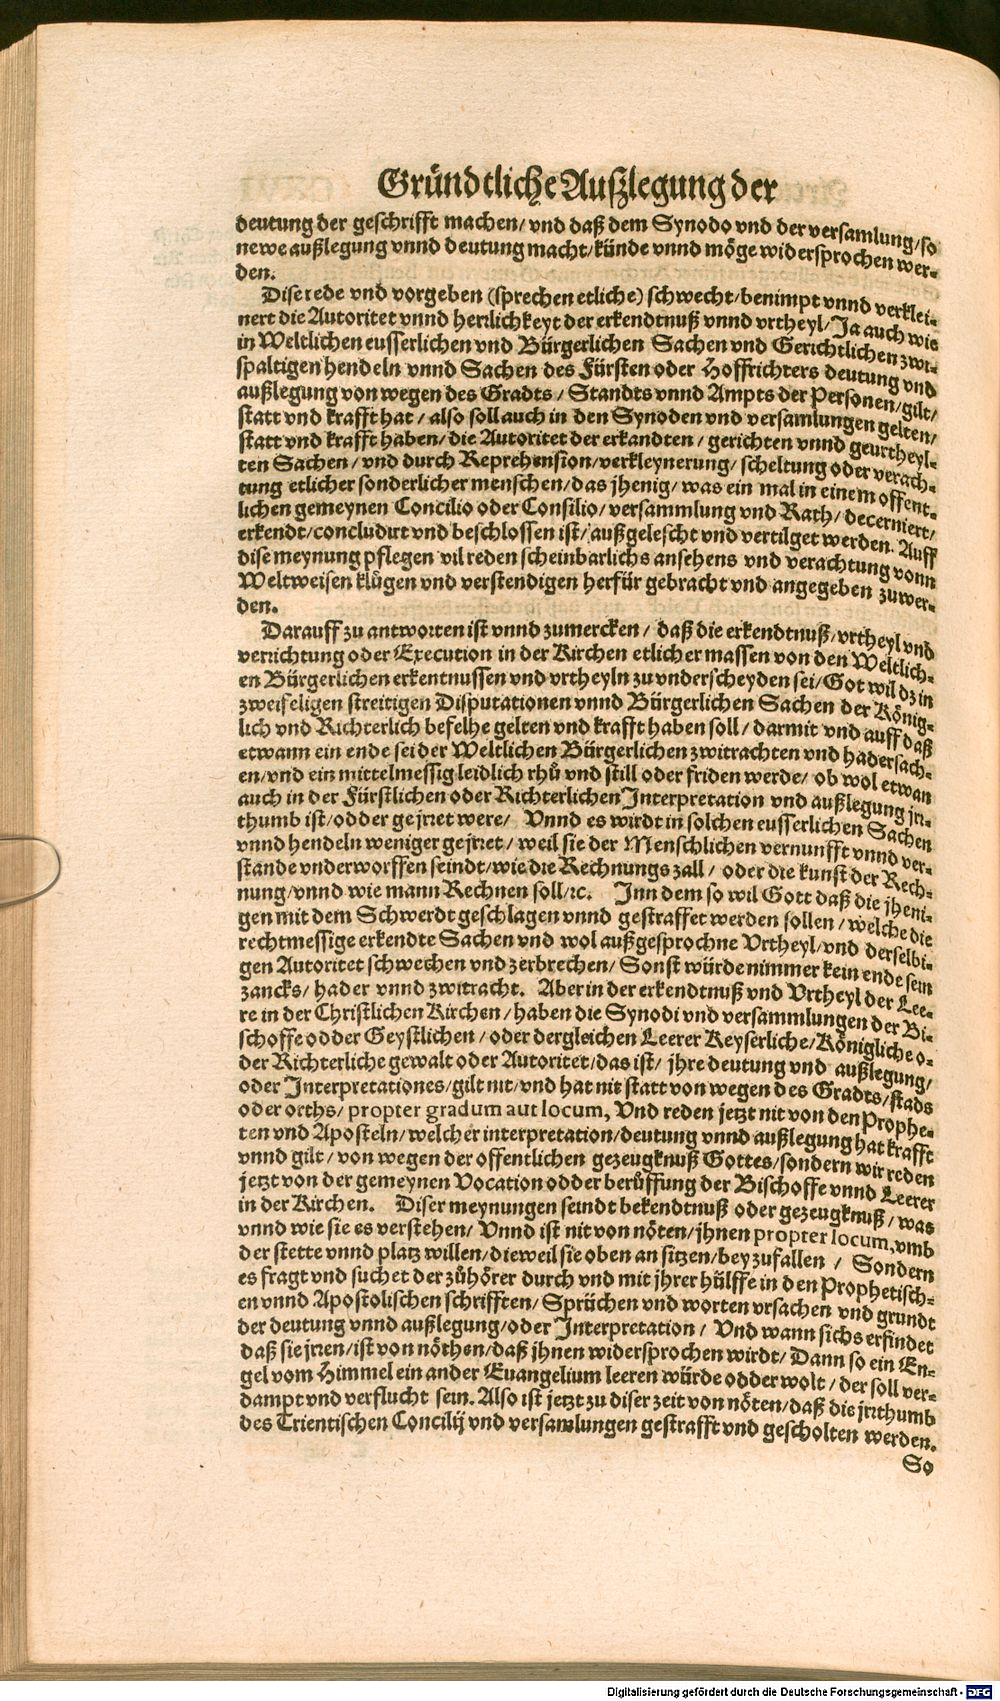 Gründtliche Außlegung der
deutung der geschrifft machen/ vnd daß dem Synodo vnd der versamlung/ so
newe außlegung vnnd deutung macht/ künde vnnd möge widersprochen wer-
den.
Dise rede vnd vorgeben (sprechen etliche) schwecht/ benimpt vnnd verklei-
nert die Autoritet vnnd herrlichkeyt der erkendtnuß vnnd vrtheyl/ Ja auch wie
in Weltlichen eusserlichen vnd Bürgerlichen Sachen vnd Gerichtlichen zwi-
spaltigen hendeln vnnd Sachen des Fürsten oder Hoffrichters deutung vnd
außlegung von wegen des Gradts/ Standts vnnd Ampts der Personen/ gilt/
statt vnd krafft hat/ also soll auch in den Synoden vnd versamlungen gelten/
statt vnd krafft haben/ die Autoritet der erkandten/ gerichten vnnd geurtheyl-
ten Sachen/ vnd durch Reprehension/ verkleynerung/ scheltung oder verach-
tung etlicher sonderlicher menschen/ das jhenig/ was ein mal in einem offent-
lichen gemeynen Concilio oder Consilio/ versammlung vnd Rath/ decerniert/
erkendt/ concludirt vnd beschlossen ist/ außgelescht vnd vertilget werden. Auff
dise meynung pflegen vil reden scheinbarlichs ansehens vnd verachtung vonn
Weltweisen klůgen vnd verstendigen herfür gebracht vnd angegeben zuwer-
den.
Darauff zu antworten ist vnnd zumercken/ daß die erkendtnuß/ vrtheyl vnd
verrichtung oder Execution in der Kirchen etlicher massen von den Weltlich-
en Bürgerlichen erkentnussen vnd vrtheyln zu vnderscheyden sei/ Got wil dz in
zweifeligen streitigen Disputationen vnnd Bürgerlichen Sachen der König-
lich vnd Richterlich befelhe gelten vnd krafft haben soll/ darmit vnd auff daß
etwann ein ende sei der Weltlichen Bürgerlichen zwitrachten vnd hadersach-
en/ vnd ein mittelmessig leidlich rhů vnd still oder friden werde/ ob wol etwan
auch in der Fürstlichen oder Richterlichen Interpretation vnd außlegung jrr-
thumb ist/ odder gejrret were/ Vnnd es wirdt in solchen eusserlichen Sachen
vnnd hendeln weniger gejrret/ weil sie der Menschlichen vernunfft vnnd ver-
stande vnderworffen seindt/ wie die Rechnungs zall/ oder die kunst der Rech-
nung/ vnnd wie mann Rechnen soll/ ꝛc. Inn dem so wil Gott daß die jheni-
gen mit dem Schwerdt geschlagen vnnd gestraffet werden sollen/ welche die
rechtmessige erkendte Sachen vnd wol außgesprochne Vrtheyl/ vnd derselbi-
gen Autoritet schwechen vnd zerbrechen/ Sonst würde nimmer kein ende sein
zancks/ hader vnnd zwitracht. Aber in der erkendtnuß vnd Vrtheyl der Lee-
re in der Christlichen Kirchen/ haben die Synodi vnd versammlungen der Bi-
schoffe odder Geystlichen/ oder dergleichen Leerer Keyserliche/ Königliche o-
der Richterliche gewalt oder Autoritet/ das ist/ jhre deutung vnd außlegung/
oder Interpretationes/ gilt nit/ vnd hat nit statt von wegen des Gradts/ stads
oder orths/ propter gradum aut locum, Vnd reden jetzt nit von den Prophe-
ten vnd Aposteln/ welcher interpretation/ deutung vnnd außlegung hat krafft
vnnd gilt/ von wegen der offentlichen gezeugknuß Gottes/ sondern wir reden
jetzt von der gemeynen Vocation odder berüffung der Bischoffe vnnd Leerer
in der Kirchen. Diser meynungen seindt bekendtnuß oder gezeugknuß/ was
vnnd wie sie es verstehen/ Vnnd ist nit von nöten/ jhnen propter locum, vmb
der stette vnnd platz willen/ dieweil sie oben an sitzen/ bey zufallen/ Sondern
es fragt vnd suchet der zůhörer durch vnd mit jhrer hülffe in den Prophetisch-
en vnnd Apostolischen schrifften/ Sprüchen vnd worten vrsachen vnd grundt
der deutung vnnd außlegung/ oder Interpretation/ Vnd wann sichs erfindet
daß sie jrren/ ist von nöthen/ daß jhnen widersprochen wirdt/ Dann so ein En-
gel vom Himmel ein ander Euangelium leeren würde odder wolt/ der soll ver-
dampt vnd verflucht sein. Also ist jetzt zu diser zeit von nöten/ daß die jrrthumb
des Trientischen Concilij vnd versamlungen gestrafft vnd gescholten werden.
So
Digitalisierung gefördert durch die Deutsche Forschungsgemeinschaft - DFG